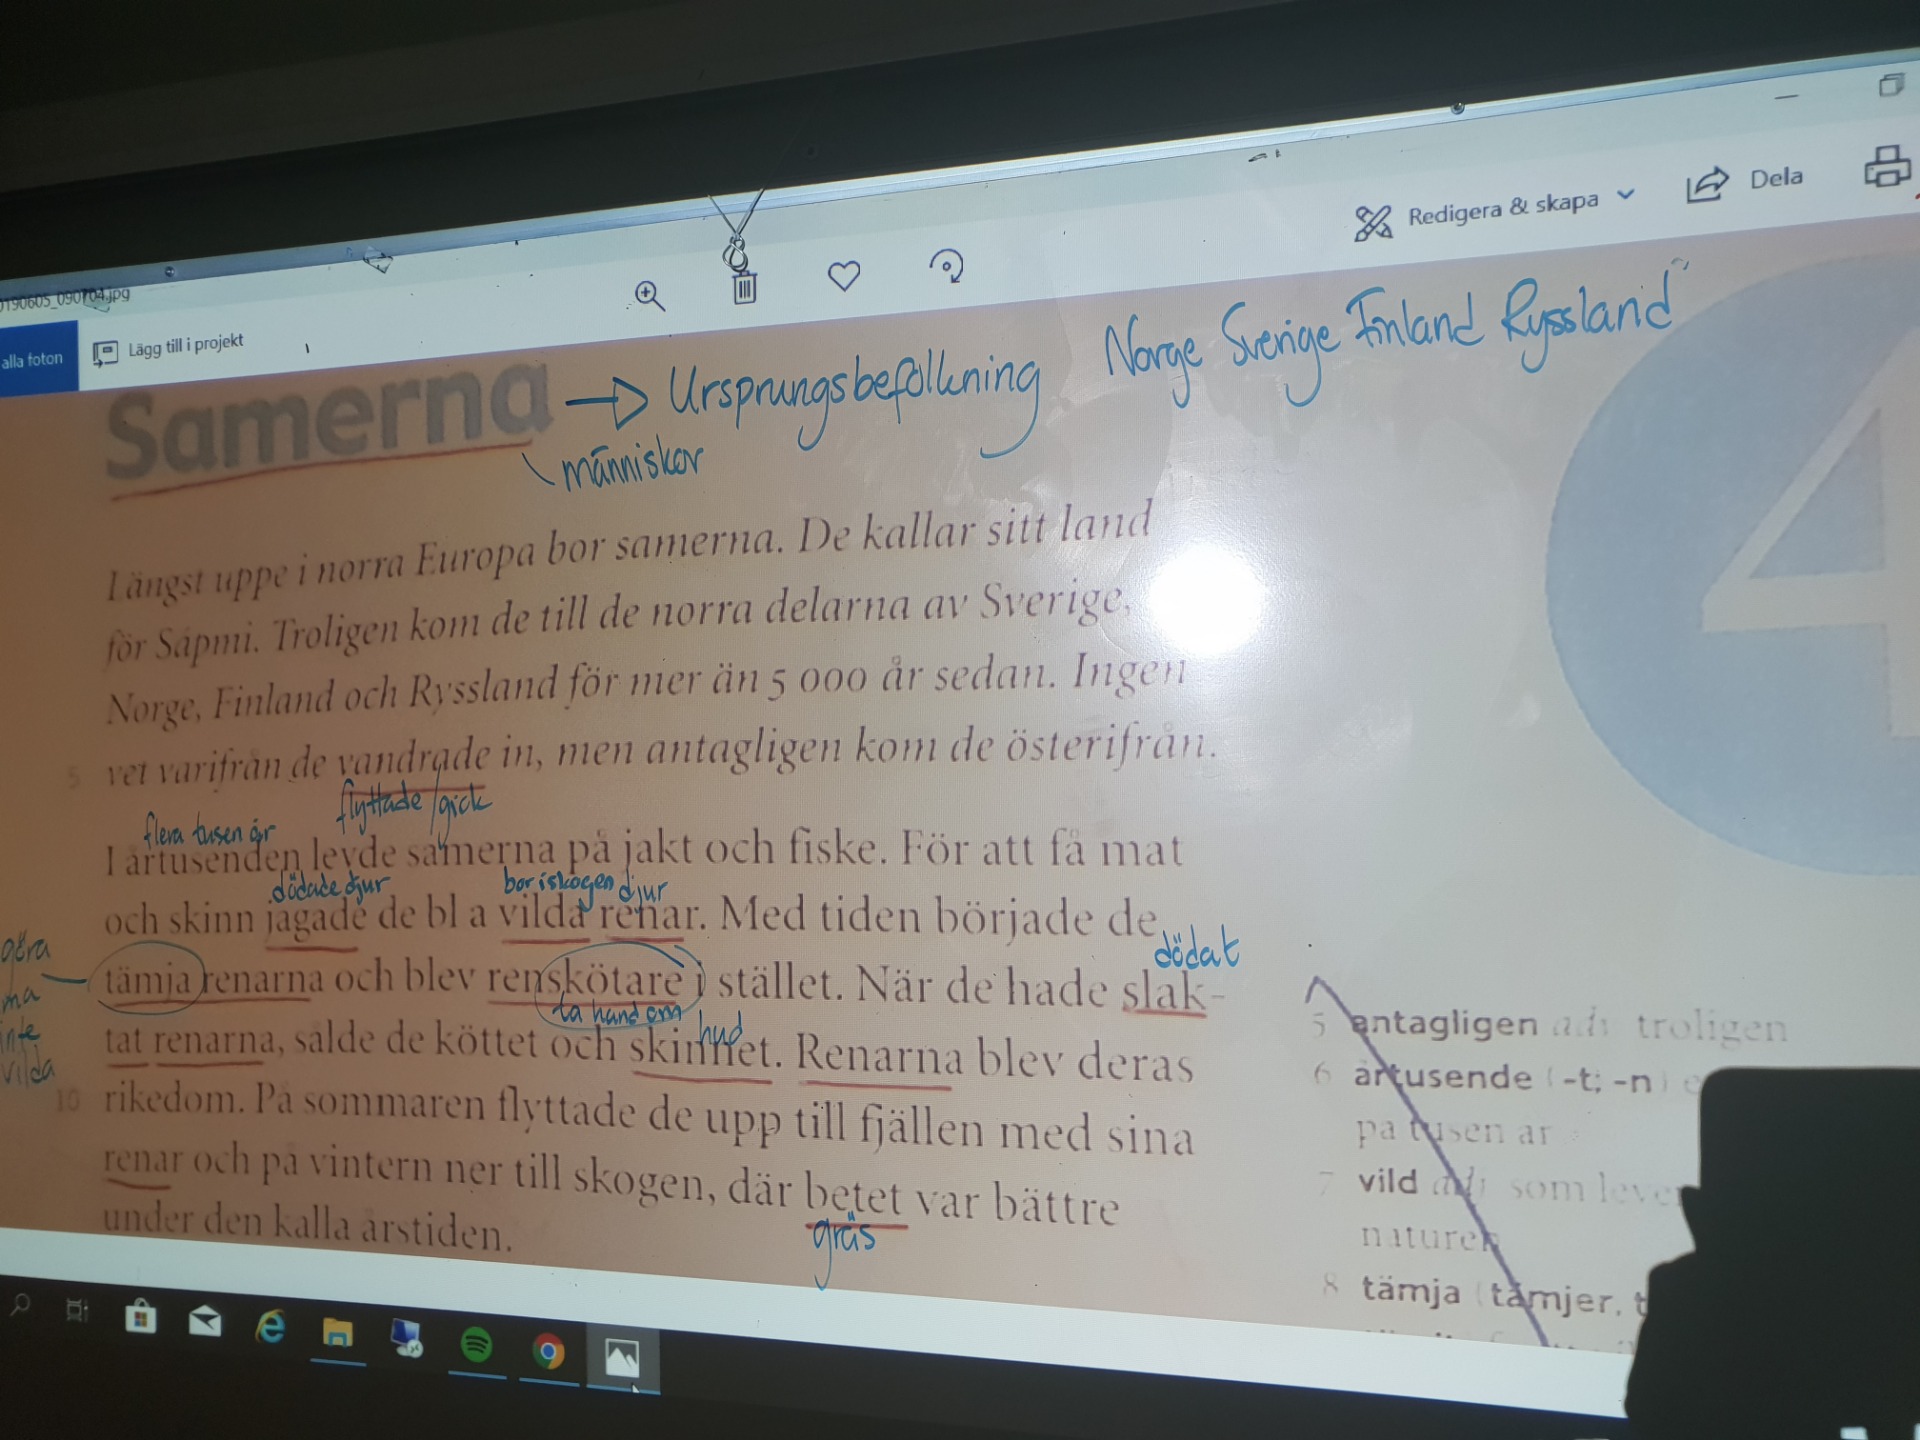 Redigera & skapa
Dela
0190605_090704.jpg
alla foton
Lägg till i projekt
Samerna
Ursprungsbefolkning
Norge Sverige Finland Ryssland
människor
4
Längst uppe i norra Europa bor samerna. De kallar sitt land
för Sápmi. Troligen kom de till de norra delarna av Sverige,
Norge, Finland och Ryssland för mer än 5 000 år sedan. Ingen
5 vet varifrån de vandrade in, men antagligen kom de österifrån.
flyttade/gick
flera tusen år
I årtusenden levde samerna på jakt och fiske. För att få mat
dödade djur
bor i skogen djur
och skinn jagade de bl a vilda renar. Med tiden började de
dödat
göra
tämja renarna och blev renskötare i stället. När de hade slak-
ma
ta hand om
hud
inte
tat renarna, sålde de köttet och skinnet. Renarna blev deras
vilda
10 rikedom. På sommaren flyttade de upp till fjällen med sina
renar och på vintern ner till skogen, där betet var bättre
gräs
under den kalla årstiden.
5 antagligen adv troligen
6 årtusende (-t; -n)
på tusen år
7 vild adj som lever
naturen
8 tämja (tämjer, t